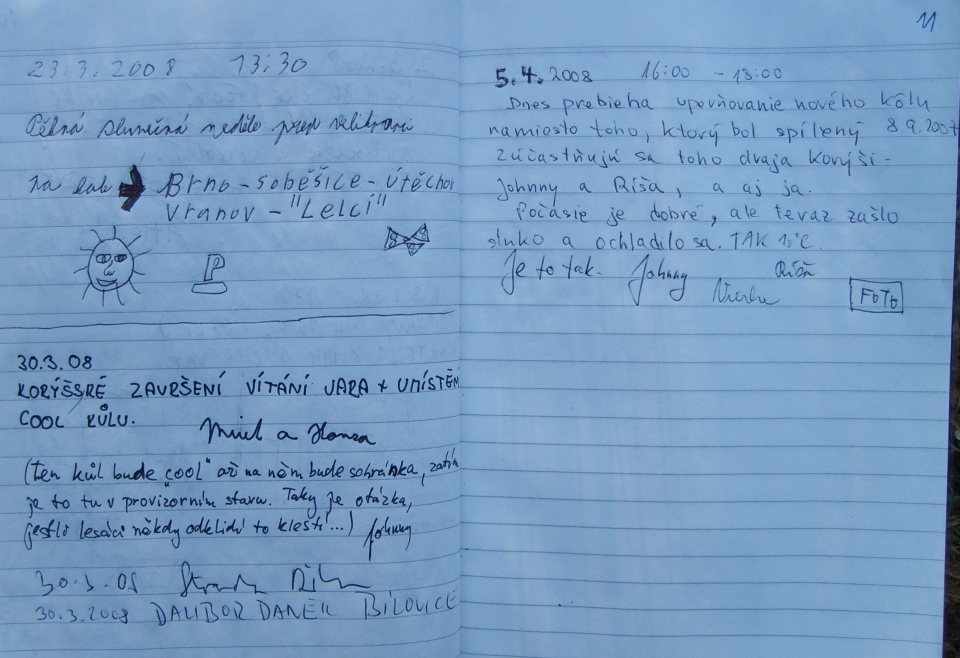 23.3.2008 13:30
Pěkná slunečná neděle před velikonoci
Brno - soběšice - Útěchov
Vranov - "Lelci"
P
30.3.08
KORÝŠSKÉ ZAVRŠENÍ VÍTÁNÍ JARA + UMÍSTĚN
COOL KŮLU.
a Honza
(ten kůl bude „cool" až na něm bude schránka, zatím
je to tu v provizorním stavu. Taky je otázka,
jestli lesáci někdy odklidí to klestí...) Johnny
30.3.08
30.3.2008 DALIBOR DANĚK BÍLOVICE
11
5.4.2008 16:00 - 18:00
Dnes prebieha upevňovanie nového kôlu
namiesto toho, ktorý bol spílený 8.9.2007
zúčastňujú sa toho dvaja korýši -
Johnny a Ríša, a aj ja.
Počásie je dobré, ale teraz zašlo
slnko a ochladilo sa. TAK 10°C.
Je to tak. Johnny Ríša
FOTO